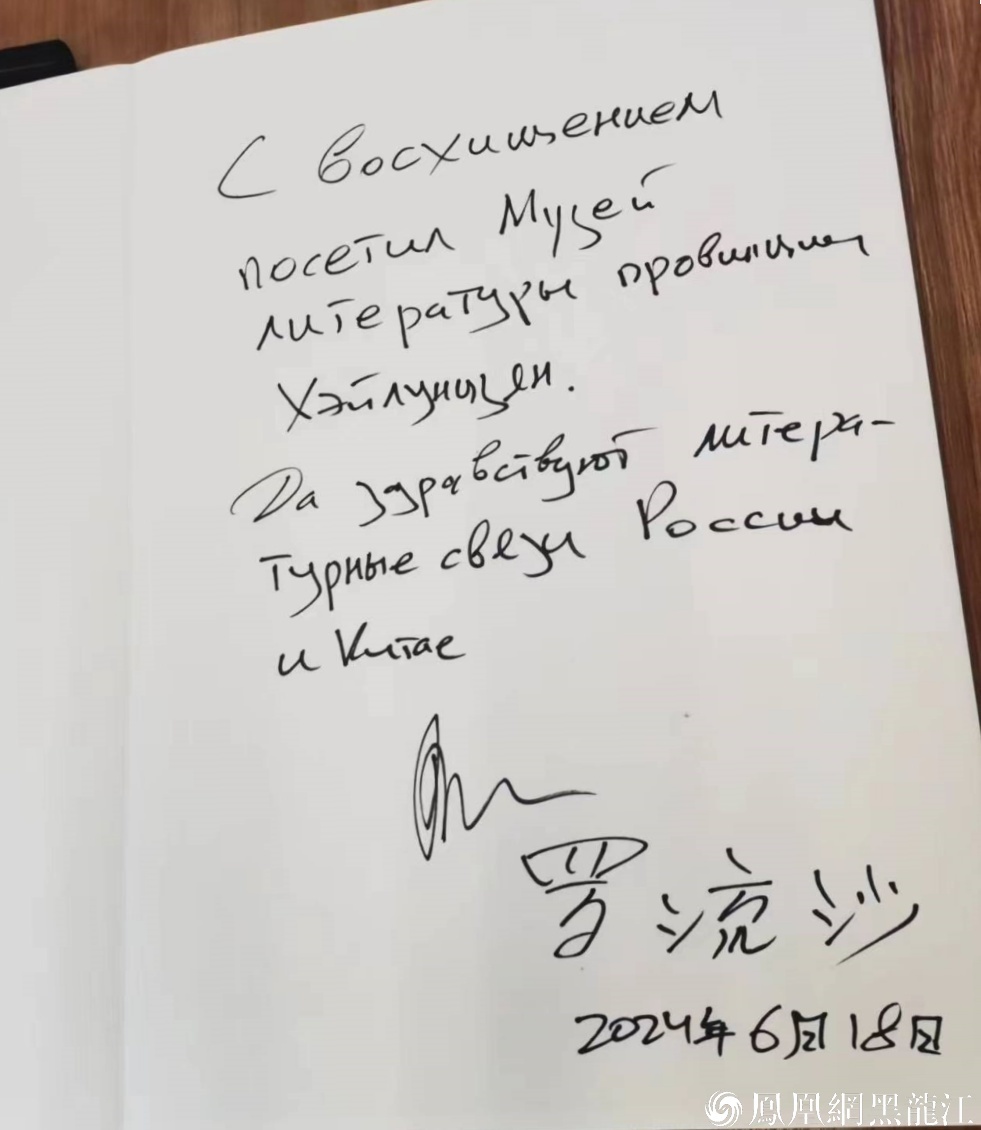 С восхищением
посетил Музей
литературы провинции
Хэйлунцзен.
Да здравствуют литера-
турные связи России
и Китае
罗流沙
2024年6月18日
鳳凰網黑龍江